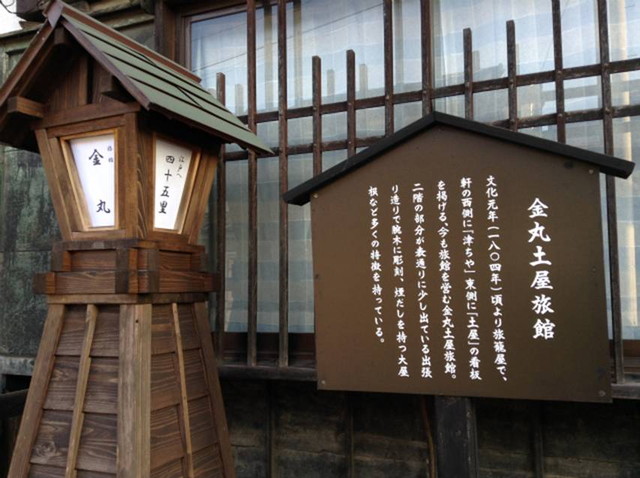 金丸土屋旅館
文化元年(一八〇四年)頃より旅籠屋で、
軒の西側に「津ちや」東側に「土屋」の看板
を掲げる、今も旅館を営む金丸土屋旅館。
二階の部分が表通りに少し出ている出張
り造りで腕木に彫刻、煙だしを持つ大屋
根など多くの特徴を持っている。
江戸へ
四十五里
金丸